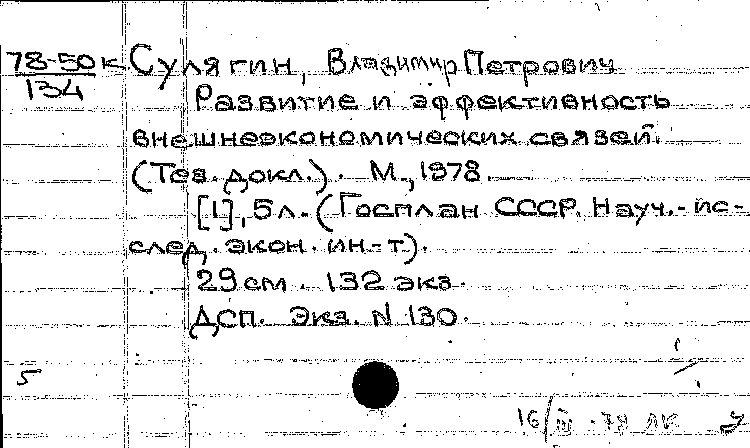 78-50к Сулягин, Владимир Петрович
134
Развитие и эффективность
внешнеэкономических связей.
(Тез. докл.). М., 1978.
[1], 5л. (Госплан СССР. Науч.-ис-
след. экон. ин-т).
29 см. 132 экз.
ДСП. Экз. N 130.
5
16/III-78 лк